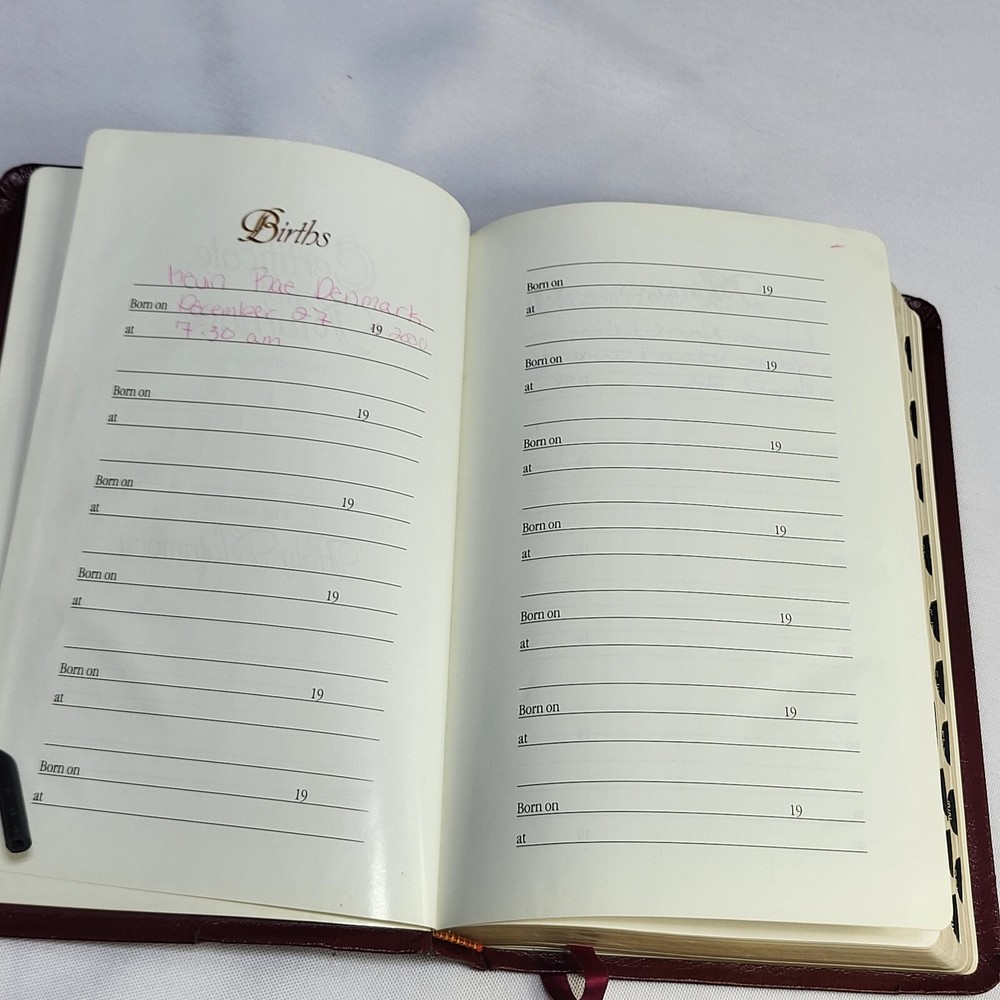 Births
Rae Denmark
Born on December 27 19 2000
at 7:30 am
Born on 19
at
Born on 19
at
Born on 19
at
Born on 19
at
Born on 19
at
Born on 19
at
Born on 19
at
Born on 19
at
Born on 19
at
Born on 19
at
Born on 19
at
Born on 19
at